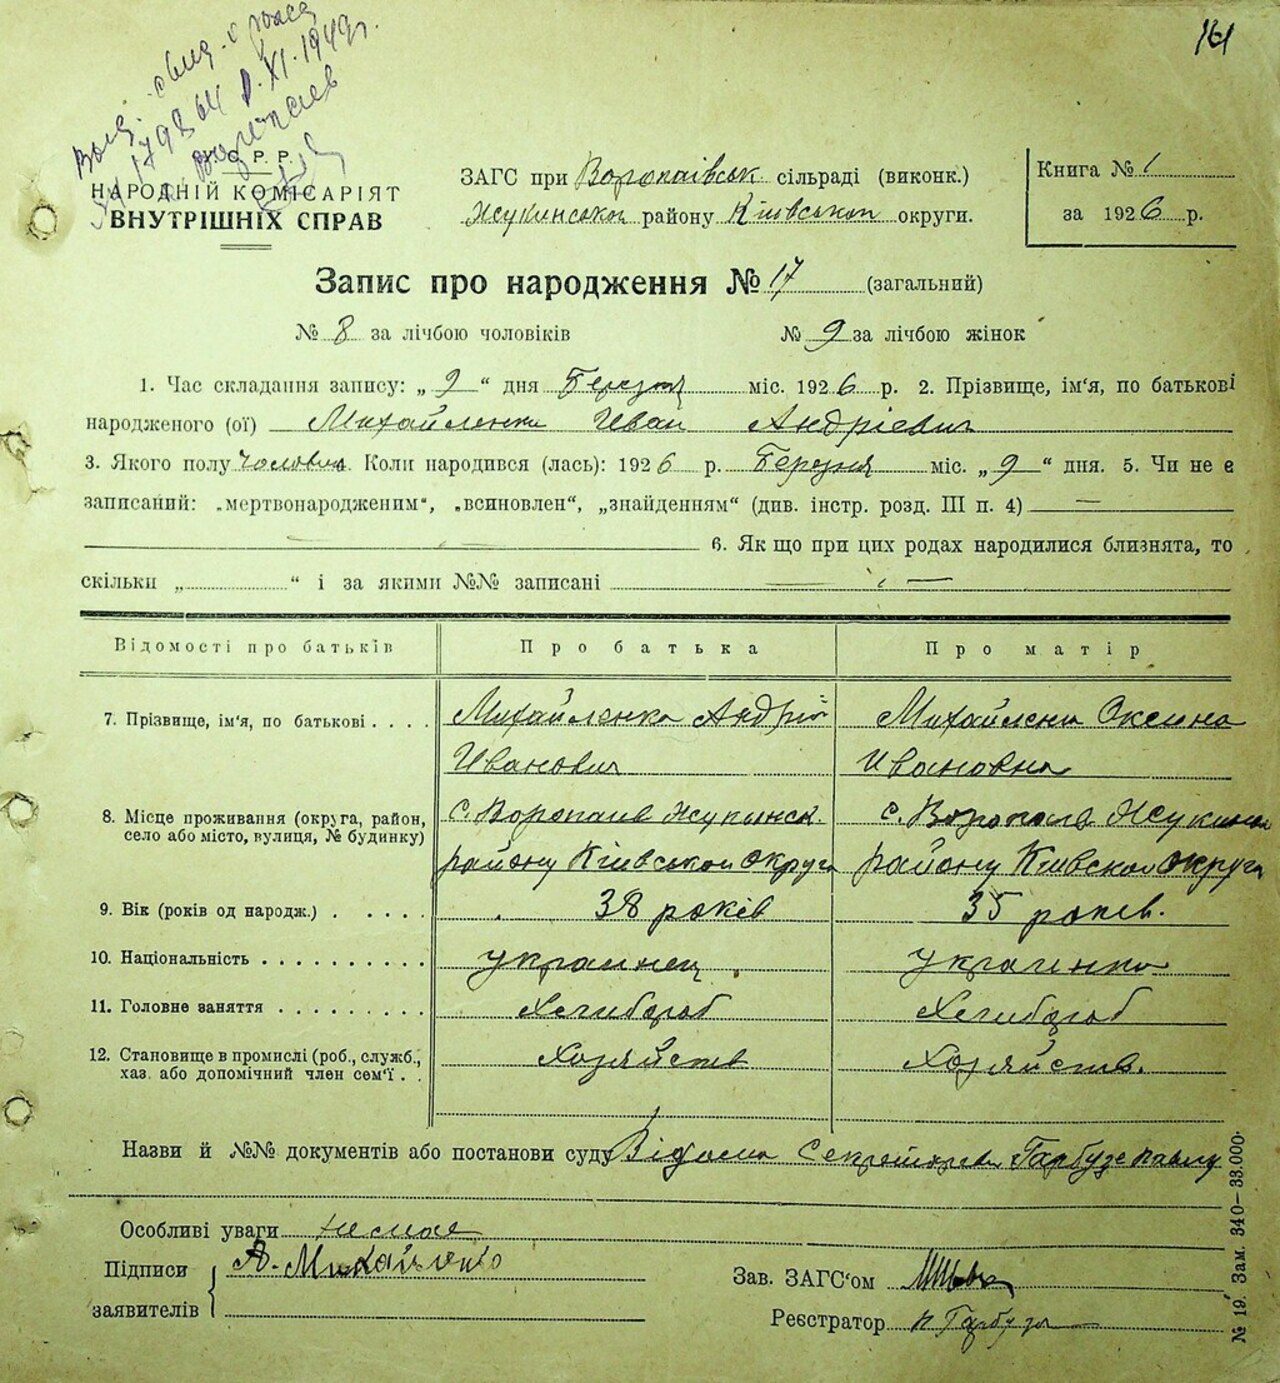 161
У. С. Р. Р.
НАРОДНІЙ КОМІСАРІЯТ
ВНУТРІШНІХ СПРАВ
ЗАГС при Воропаївськ сільраді (виконк.)
Жукинської району Київської округи.
Книга № 1
за 1926 р.
Запис про народження № 17 (загальний)
№ 8 за лічбою чоловіків № 9 за лічбою жінок
1. Час складання запису: „ 9 “ дня Березня міс. 1926 р. 2. Прізвище, ім'я, по батькові
народженого (ої) Михайленки Иван Андріевич
3. Якого полу чоловіч. Коли народився (лась): 1926 р. Березня міс. „ 9 “ дня. 5. Чи не є
записаний: „мертвонародженим“, „всиновлен“, „знайденням“ (див. інстр. розд. III п. 4) —
6. Як що при цих родах народилися близнята, то
скільки „ “ і за якими №№ записані —
Відомості про батьків Про батька Про матір
7. Прізвище, ім'я, по батькові . . . . Михайленко Андрій Михайленки Оксина
Иванович Ивановна
8. Місце проживання (округа, район, с. Воропаїв Жукинск. с. Воропаїв Жукинск
село або місто, вулиця, № будинку) району Київськои округа району Київскои округа
9. Вік (років од народж.) . . . . . 38 років 35 років.
10. Національність . . . . . . . . . . украинец украинка
11. Головне заняття . . . . . . . . . Хлибороб Хлибороб
12. Становище в промислі (роб., служб., Хозяйств Хозяйств.
хаз. або допомічний член сем'ї . .
Назви й №№ документів або постанови суду Відома Секретарев Гарбузе Павлу
Особливі уваги немае
Підписи А. Михайленко
заявителів
Зав. ЗАГС'ом
Реєстратор П Гарбуз
№ 19. Зам. 340—33.000.